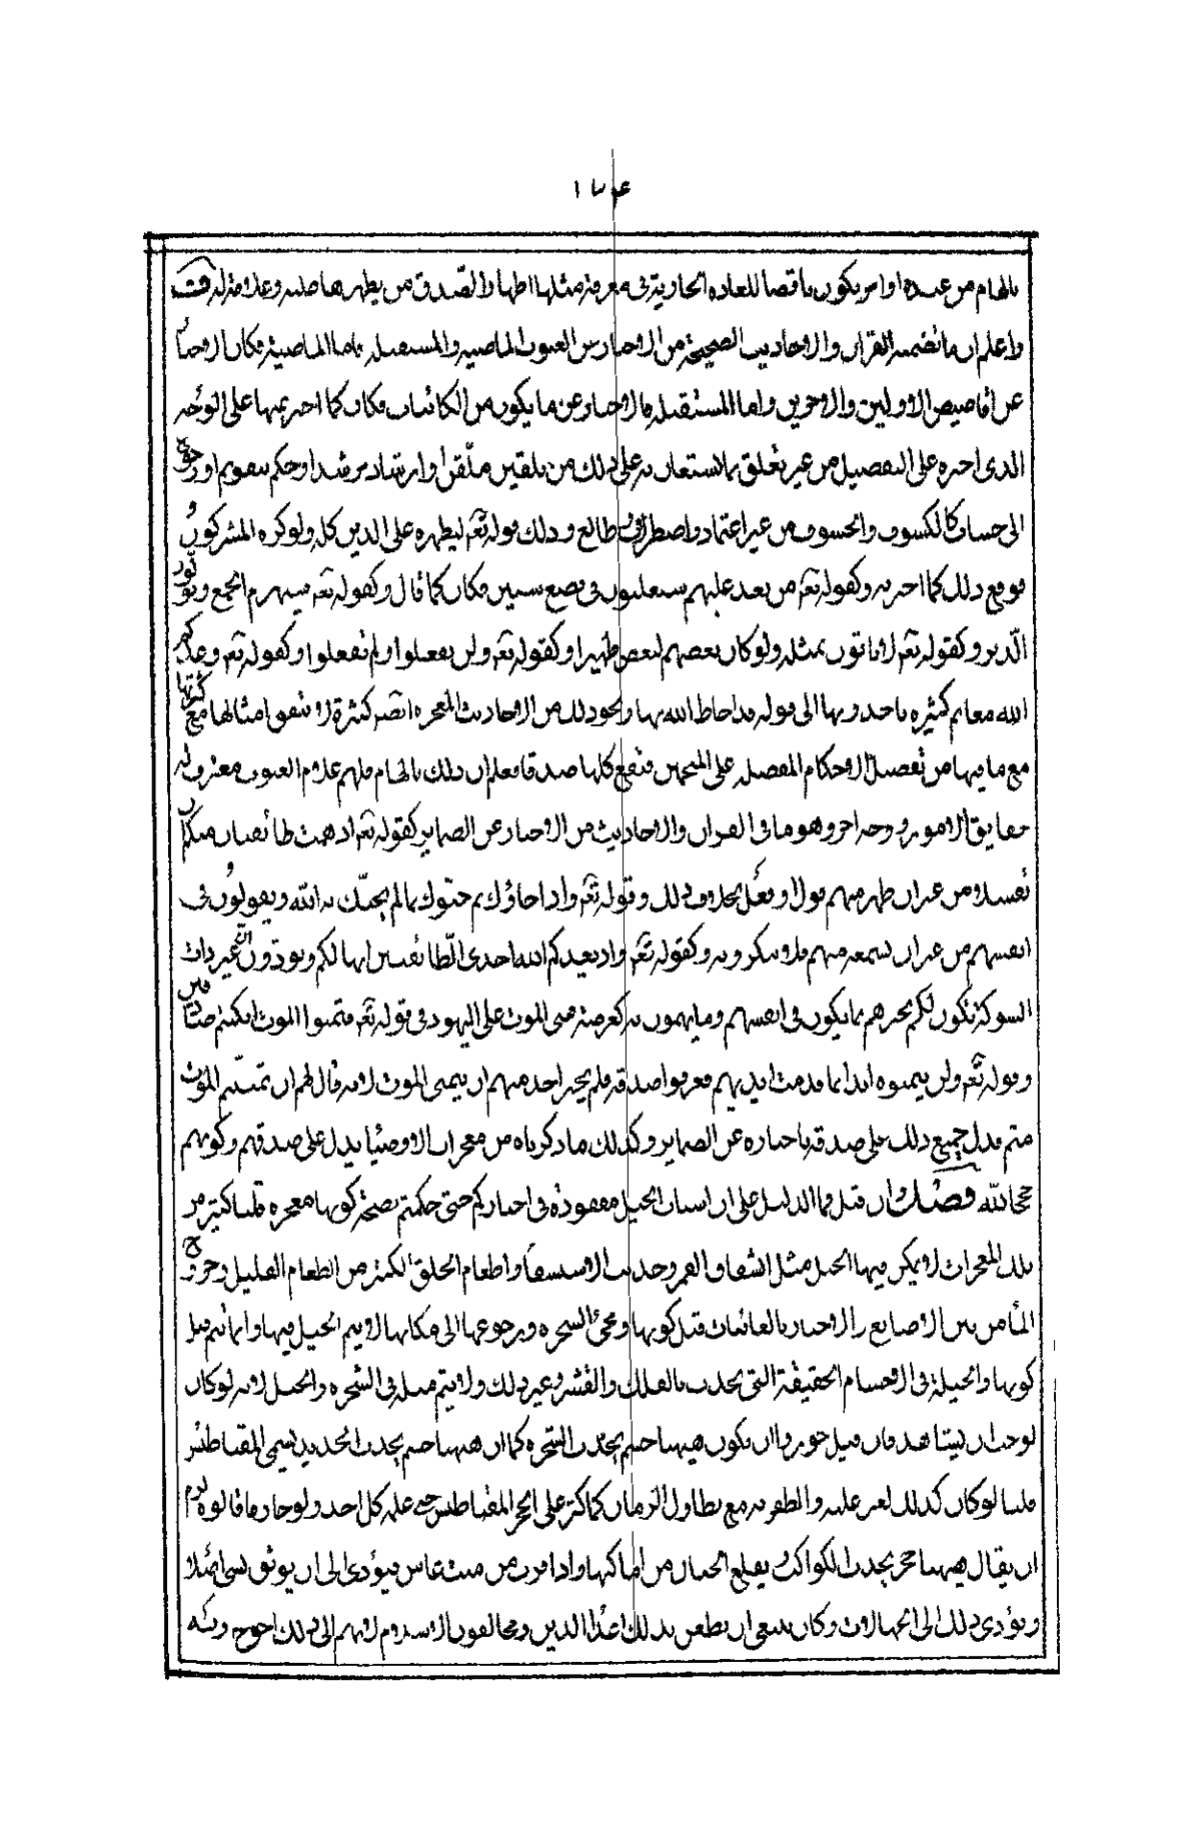 ١٧٤
بالهام من عنده او امر يكون ناقصا للعادة الجارية فى معرفة مثلها اظهارا لصدق من يظهرها عليه وعلامة له فصل
واعلم ان ما تضمنه القران والاحاديث الصحيحة من الاخبار عن الغيوب الماضيه والمستقبله فاما الماضية فكان الاخبار
عن اقاصيص الاولين والاخرين واما المستقبله فالاخبار عن ما يكون من الكائنات فكان كما اخبر عنها على الوجه
الذى اخبره على التفصيل من غير تعلق بما يستعان به على ذلك من تلقين ملقن او ارشاد مرشد او حكم بتقويم او رجوع
الى حساب كالكسوف والخسوف من غير اعتماد واصطرلاب وطالع وذلك قوله تعه ليظهره على الدين كله ولو كره المشركون
فوقع ذلك كما اخبر به وكقوله تعه من بعد غلبهم سيغلبون فى بضع سنين فكان كما قال وكقوله تعه سيهزم الجمع ويولون
الدبر وكقوله تعه لا ياتون بمثله ولو كان بعضهم لبعض ظهيرا وكقوله تعه ولن يفعلوا ولم تفعلوا وكقوله تعه وعدكم
الله مغانم كثيره ياخذونها الى قوله قد احاط الله بها ونحو ذلك من الاحاديث المعجره كثيرة لا يتفق امثالها مع كثرتها
مع ما فيها من تفصيل الاحكام المفصله على المنجمين فتقع كلها صدقا فعلم ان ذلك بالهام ملهم علام الغيوب معرفا له
حقايق الامور ووجه اخر وهو ما فى القران والاحاديث من الاخبار عن الضماير كقوله تعه اذ همت طائفتان منكم ان
تفشلا من غير ان ظهر منهم قول او فعل بخلاف ذلك وقوله تعه واذا جاؤك بم حيوك بما لم يحيك به الله ويقولون فى
انفسهم من غير ان يسمعه منهم فلا ينكرونه وكقوله تعه واذ يعدكم الله احدى الطائفتين انها لكم وتودون ان غير ذات
الشوكة تكون لكم يخبرهم بما يكون فى انفسهم وما يهمون به كعرضه تمنى الموت على اليهود فى قوله تعه فتمنوا الموت ان كنتم صادقين
وقوله تعه ولن يتمنوه ابدا بما قدمت ايديهم فعرفوا صدقه فلم يجسر احد منهم ان يتمنى الموت لانه قال لهم ان تمنيتم الموت
متم فدل جميع ذلك على صدقه باخباره عن الضماير وكذلك ما ذكرناه من معجزات الاوصيا يدل على صدقهم وكونهم
حجج الله فصل وان قيل فما الدليل على ان اسباب الحيل مفقودة فى اخباركم حتى حكمتم بصحة كونها معجزه قلنا كثير من
تلك المعجرات لا يمكن فيها الحيل مثل انشقاق القمر وحديث الاستسقاء واطعام الخلق الكثير من الطعام القليل وخروج
الماء من بين الاصابع والاخبار بالغائبات قبل كونها ومجئ الشجره ورجوعها الى مكانها لا يتم الحيل فيها وانما يتم قبل
كونها والحيلة فى الاجسام الخفيفة التى يجذب بالفلك والقشر وغير ذلك ولا يتم مثله فى الشجره والجبل لانه لو كان
لوجب ان يشاهد فان قيل جوزوا ان يكون هيهنا جسم يجذب الشجره كما ان ههنا جسم يجذب الحديد يسمى المقناطيس
قلنا لو كان كذلك لعثر عليه والظفر به مع تطاول الزمان كما عثر على الحجر المقناطيس حتى علمه كل احد ولو جاز ما قالوه لزم
ان يقال هيهنا حجر يجذب الكواكب ويقلع الجبال من اماكنها واذا قرب من ميت عاش فيؤدى الى ان يوثق بشئ اصلا
ويؤدى ذلك الى الجهالات وكان ينبغى ان يطعن بذلك اعداء الدين ومخالفون الاسلام لانهم الى ذلك احوج وبه